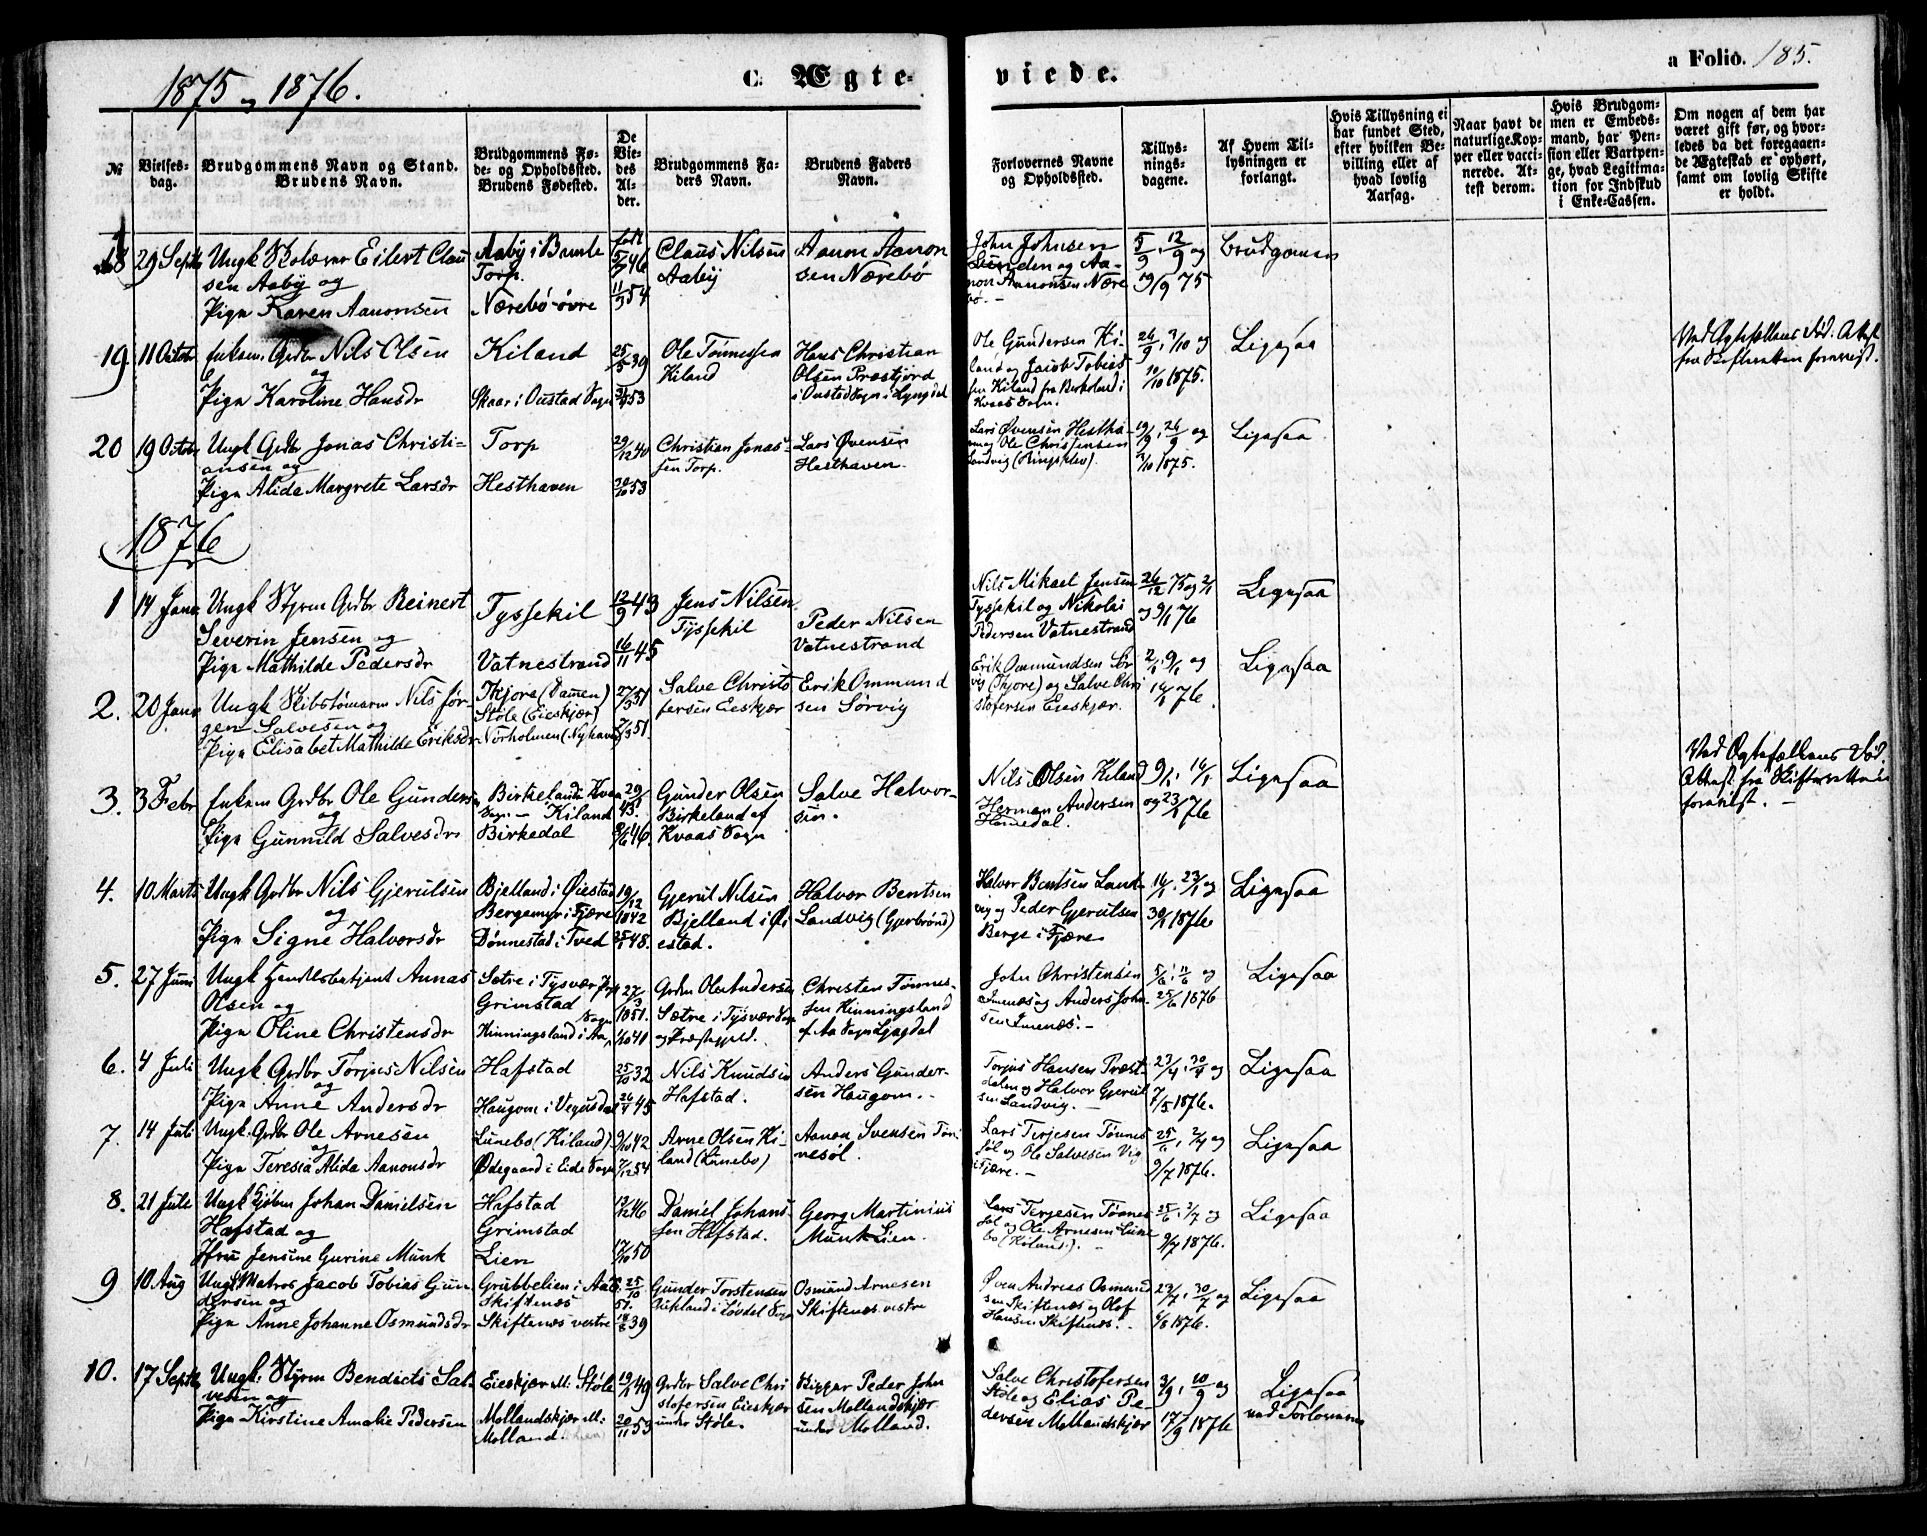 1875 og 1876.
C. Ægteviede.
a Folio. 185.
№
Vielses-
dag.
Brudgommens Navn og Stand.
Brudens Navn.
Brudgommens Fø-
de- og Opholdssted.
Brudens Fødested.
De
Vie-
des
Al-
der.
Brudgommens Fa-
ders Navn.
Brudens Faders
Navn.
Forlovernes Navne
og Opholdssted.
Tillys-
nings-
dagene.
Af Hvem Til-
lysningen er
forlangt.
Hvis Tillysning ei
har fundet Sted,
efter hvilken Be-
villing eller af
hvad lovlig
Aarsag.
Naar havt de
naturlige Kop-
per eller vacci-
nerede. At-
test derom.
Hvis Brudgom-
men er Embeds-
mand, har Pen-
sion eller Vartpen-
ge, hvad Legitima-
tion for Indskud
i Enke-Cassen.
Om nogen af dem har
været gift før, og hvor-
ledes da det foregaaen-
de Ægteskab er ophørt,
samt om lovlig Skifte
er holdt.
18
29 Septb
Ungk Skolærer Eilert Clau
sen Aaby og
Pige Karen Aanonsen
Aaby i Bamle
Torp.
Nærebö övre
født
5/5 46
11/9 54
Claus Nilsen
Aaby
Aanon Aanon
sen Nærebö
John Johnsen
Linden og Aa-
non Aanonsen Nære
bö.-
5/9, 12/9 og
19/9 75
Brudgomen
19
11 Octobr
Enkem. Grdbr Nils Olsen
og
Pige Karoline Hansdr
Kiland
Skaar i Oustad Sogn
25/5 39
53
Ole Tönnessen
Kiland
Hans Christian
Olsen Præstjord
i Oustad Sogn i Lyngdal
Ole Gundersen Ki-
land og Jacob Tobias
sen Kiland fra Birkeland i
Kvaas Sogn.
26/9, 3/10 og
10/10 1875.
Ligesaa
Ved Ægtefællens Död. Attest
fra Skifteretten forevist.
20
19 Octobr
Ungk Grdbr Jonas Christi-
ansen og
Pige Alida Margrete Larsdr
Torp
Hesthaven
29/12 40
30/10 53
Christian Jonas-
sen Torp.
Lars Övensen
Hesthaven.
Lars Övensen Hestha-
ven og Ole Christensen
Landvig (Ringsklev).
19/9, 26/9 og
3/10 1875.
Ligesaa
1876
1
14 Janr
Ungk Styrm Grdbr Reinert
Severin Jensen og
Pige Mathilde Pedersdr
Tyssekil
Vatnestrand
12/9 43
16/11 45
Jens Nilsen
Tyssekil
Peder Nilsen
Vatnestrand
Nils Mikael Jensen
Tyssekil og Nikolai
Pedersen Vatnestrand
26/12 75 og 2/1
og 9/1 76
Ligesaa
2.
20 Janr
Ungk Skibstömmerm Nils Jör-
gen Salvesen og
Pige Elisabet Mathilde Eriksdr
Tkjore (Damen)
Stöle (Eieskjær)
Norholmen (Nyhaven)
27/3 51
7/3 51.
Salve Christo
fersen Eieskjær
Erik Ommund
sen Sörvig
Erik Ommundsen Sör
vig (Tkjore) og Salve Chri
stofersen Eieskjær.
2/1, 9/1 og
16/1 76.
Ligesaa
3.
3 Febr
Enkem Grdbr Ole Gunders
og
Pige Gunnild Salvesdr
Birkeland i Kvaas
Sogn - Kiland
Birkedal
29/ 43.
46.
Gunder Olsen
Birkeland af
Kvaas Sogn
Salve Halvor-
sen.
Nils Olsen Kiland
Herman Andersen
Homedal.
9/1, 16/1
og 23/1 76
Ligesaa
Ved Ægtefællens Död.
Attest fra Skifteretten
forevist. -
4.
10 Marts
Ungk Grdbr Nils Gjerulsen
og
Pige Signe Halvorsdr
Bjelland i Öiestad
Bergemyr i Fjære
Dönnestad i Tved
19/12
1842
25/1 48.
Gjerul Nilsen
Bjelland i Öi
estad.
Halvor Bentsen
Landvig (Gjerbrönd)
Halvor Bentsen Land-
vig og Peder Gjerulsen
Berge i Fjære
16/1, 23/1 og
30/1 1876.
Ligesaa
5.
27 Juni
Ungk Handelsbetjent Aanas
Olsen og
Pige Oline Christensdr
Sætre i Tysvær Prgj
Grimstad
Hinningsland i Aa Sogn
27/3
1851.
40
Grdbr Ole Andersen
Sætre i Tysvær Sogn
og Præstegjeld.
Christen Tönnes-
sen Hinningsland
af Aa Sogn Lyngdal
John Christensen
Imenæs og Anders John-
sen Imenæs. -
5/6, 11/6 og
25/6 1876
Ligesaa
6.
4 Juli
Ungk Grdbr Torjus Nilsen
og
Pige Anne Andersdr
Hafstad
Haugom i Vegusdal
25/10 32
26/4 45
Nils Knudsen
Hafstad.
Anders Gunder-
sen Haugom. -
Torjus Hansen Præst-
dalen og Halvor Gjerul
sen Landvig. -
23/4, 30/4 og
7/5 1876.
Ligesaa
7.
14 Juli
Ungk. Grdbr Ole Arnesen
Pige Teresia Alida Aanonsdr
Lunebo (Kiland)
Ödegaard i Eide Sogn
9/10 42
7/12 54
Arne Olsen Ki-
land (Lunebo)
Aanon Svensen Tön
nesöl.
Lars Terjesen Tönnes
söl og Ole Salvesen Vig
i Fjære. -
25/6, 2/7 og
9/7 1876.
Ligesaa
8.
21 Juli
Ungk Kjöbm Johan Danielsen
Hafstad og
Jfru Jensine Gurine Munk
Hafstad
Grimstad
Lien
13/12 46
17/10 50
Daniel Johans-
sen Hafstad.
Georg Martinius
Munk Lien.
Lars Terjesen Tönnes
söl og Ole Arnesen Lune
bo (Kiland). -
25/6, 2/7 og
9/7 1876.
Ligesaa
9
10. Aug
Ungk Matros Jacob Tobias Gun
dersen og
Pige Anne Johanne Osmundsdr
Grubbelien i Aas
Skiftenæs
Skiftenæs vestre
25/10
51.
39
Gunder Torstensen
Birkland i Lövdal Sogn
Osmund Arnesen
Skiftenæs vestre
Öven Andreas Osmund
sen Skiftenæs og Olof
Hansen Skiftenæs. -
23/7, 30/7 og
6/8 1876.
Ligesaa
10.
17 Septb
Ungk. Styrm Bendicts Sal-
vesen og
Pige Kirstine Amalie Pedersen
Eieskjær M: Stöle
Mollandskjær M:
Molland.
19/2 49
20/11 53
Grdbr Salve Chri
stofersen Eieskjær
under Stöle.
Bygger Peder John
sen Mollandskjær
under Molland.
Salve Christofersen
Stöle og Elias Pe-
dersen Mollandskjær
3/9, 10/9 og
17/9 1876
Ligesaa
ved Forloveren